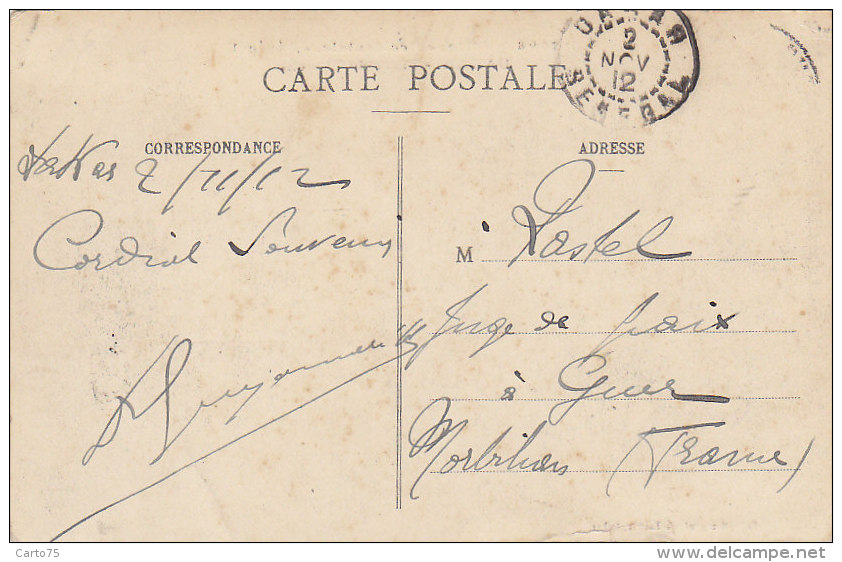 CARTE POSTALE
DAKAR
2
NOV
12
SENEGAL
CORRESPONDANCE
Dakar 2/11/12
Cordial Souvenir
ADRESSE
M Rastel
Juge de paix
à Guer
Morbihan (France)
Carto75
www.delcampe.net